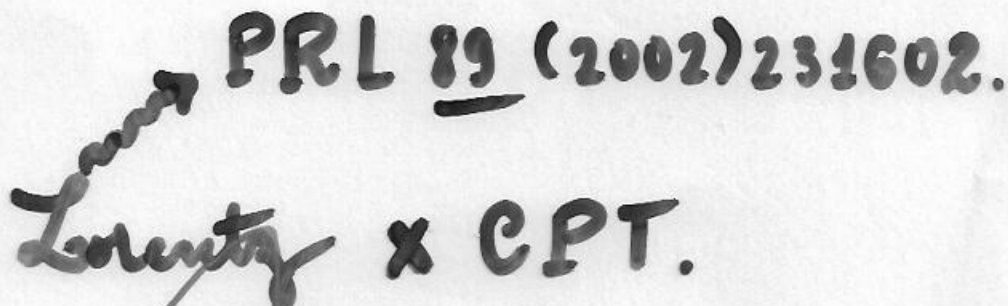 PRL 89 (2002) 231602.
Lorentz x CPT.